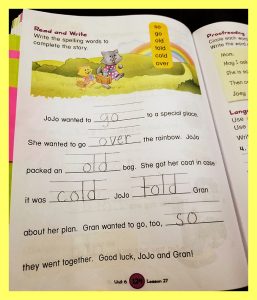 Read and Write
Write the spelling words to
complete the story.
so
go
old
told
cold
over
JoJo wanted to go to a special place.
She wanted to go over the rainbow. JoJo
packed an old bag. She got her coat in case
it was cold. JoJo told Gran
about her plan. Gran wanted to go, too, so
they went together. Good luck, JoJo and Gran!
Unit 6
Lesson 27
Proofreading
Circle each
Write the
Mom,
May I
She is
Then
Joey
Use
Use